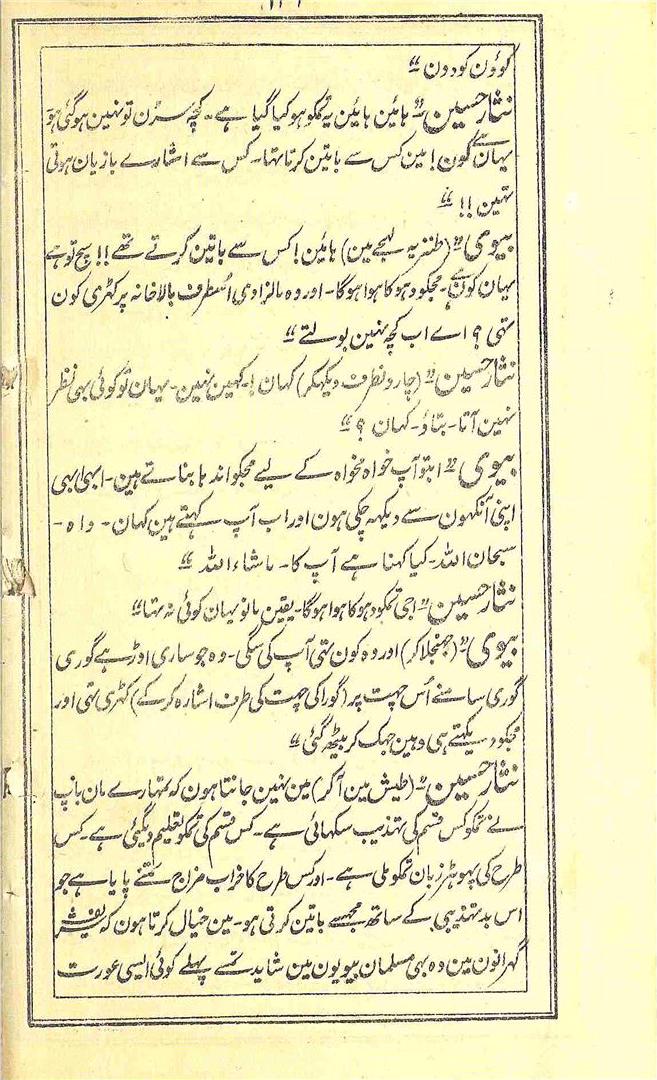 کوؤن کو دون “
نثار حسین ”ہائین ہائین یہ تمکو ہو کیا گیا ہے۔ کچہ سڑن تو نہین ہوگئی ہو
یہان ہے کون! مین کس سے باتین کرتا تہا۔ کس سے اشارے بازیان ہوتی
تہین !! “
بیوی ”(طنزیہ لہجے مین) ہائین! کس سے باتین کرتے تھے !! سچ تو ہے
یہان کون ہے۔ مجکو دہوکا ہوا ہوگا۔ اور وہ مالزادی اُسطرف بالاخانہ پر کہڑی کون
تہی ؟ اے اب کچہ نہین بولتے “
نثار حسین ”(چارونطرف دیکہکر) کہان !۔ کہین نہین۔ یہان تو کوئی بہی نظر
نہین آتا۔ بتاؤ۔ کہان ؟ “
بیوی ” ابتو آپ خواہ مخواہ کے لیے مجکو اندہا بناتے ہین۔ ابہی ابہی
اپنی آنکہون سے دیکہہ چکی ہون اور اب آپ کہتے ہین کہان ۔ واہ ۔
سبحان اللہ۔ کیا کہنا ہے آپ کا۔ ماشاء اللہ “
نثار حسین ”اجی تمکو دہوکا ہوا ہوگا۔ یقین مانو یہان کوئی نہ تہا“
بیوی ”(جہنجلاکر) اور وہ کون تہی آپ کی سگی۔ وہ جو ساری اوڑہے گوری
گوری سامنے اُس چہت پر (گورا کی چہت کی طرف اشارہ کرکے) کہڑی تہی اور
مجکو دیکہتے ہی وہین جہک کر بیٹہہ گئی “
نثار حسین ”(طیش مین آکر) مین نہین جانتا ہون کہ تمہارے مان باپ
نے تمکو کس قسم کی تہذیب سکہائی ہے۔ کس قسم کی تمکو تعلیم دیگئی ہے۔ کس
طرح کی پہوہڑ زبان تمکو ملی ہے۔ اور کس طرح کا خراب مزاج تمنے پایا ہے جو
اس بد تہذیبی کے ساتہہ مجہسے باتین کرتی ہو۔ مین خیال کرتا ہون کہ شریف
گہرانون مین وہ بہی مسلمان بیویون مین شاید تمسے پہلے کوئی ایسی عورت